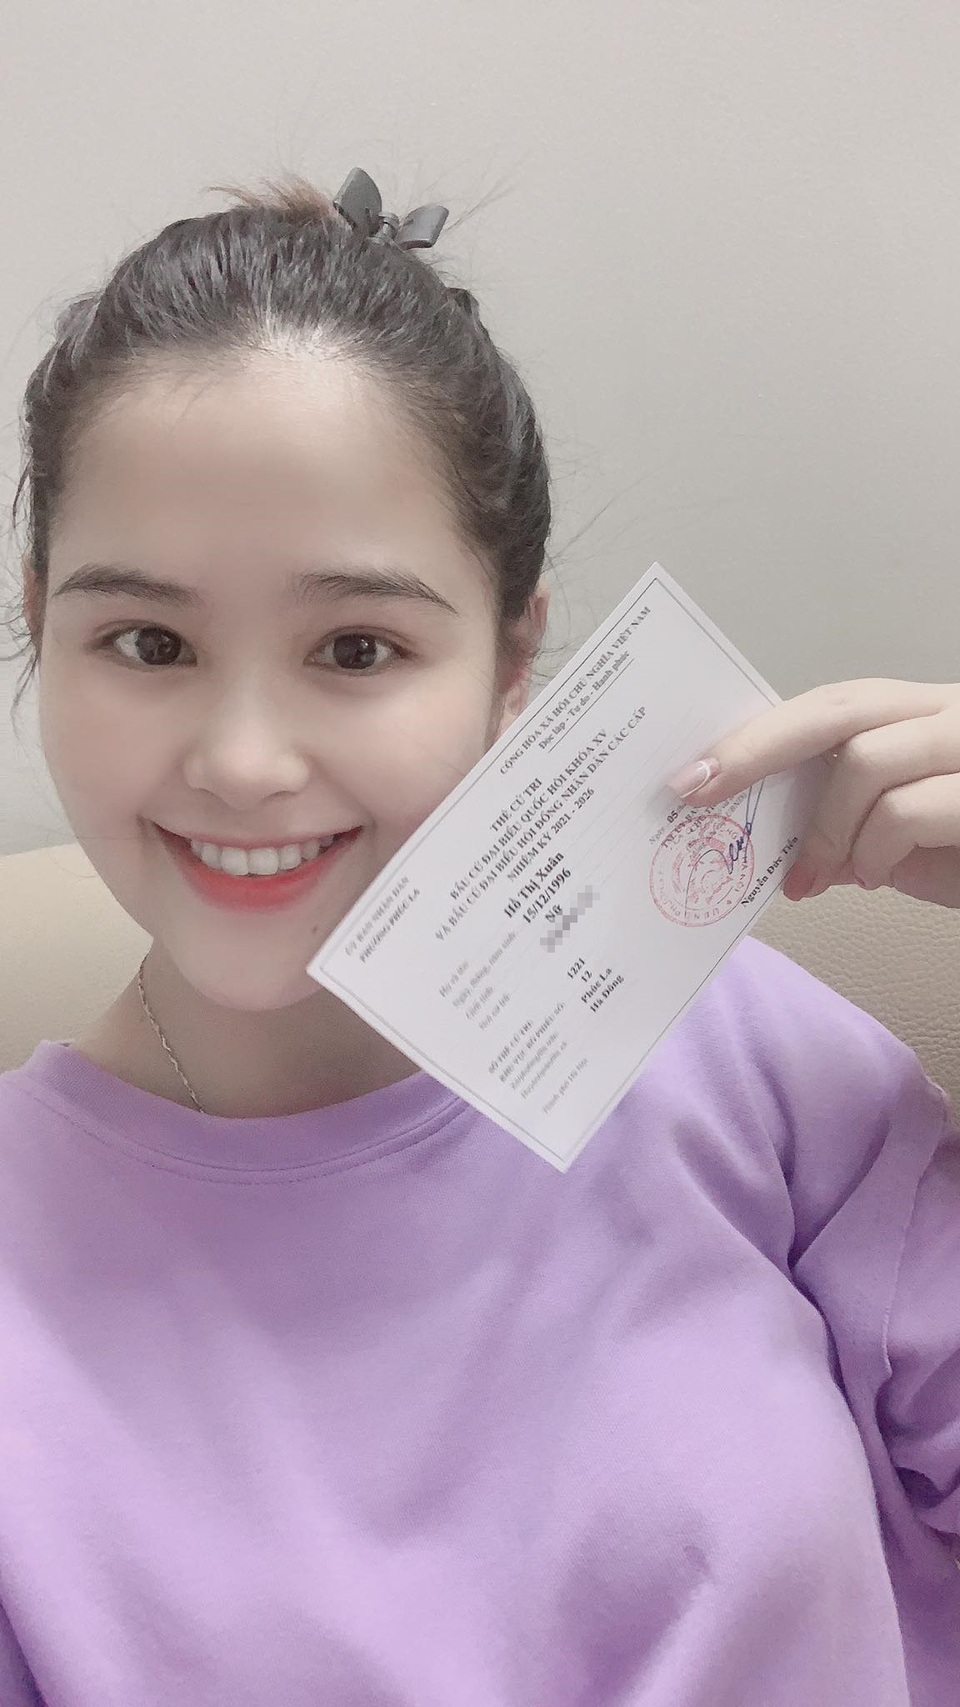 CỘNG HÒA XÃ HỘI CHỦ NGHĨA VIỆT NAM
Độc lập - Tự do - Hạnh phúc
ỦY BAN NHÂN DÂN
PHƯỜNG PHÚC LA
THẺ CỬ TRI
BẦU CỬ ĐẠI BIỂU QUỐC HỘI KHÓA XV
VÀ BẦU CỬ ĐẠI BIỂU HỘI ĐỒNG NHÂN DÂN CÁC CẤP
NHIỆM KỲ 2021 - 2026
Họ và tên: Hồ Thị Xuân
Ngày, tháng, năm sinh: 15/12/1996
Giới tính: Nữ
Nơi cư trú:
SỐ THẺ CỬ TRI: 1221
KHU VỰC BỎ PHIẾU SỐ: 12
Phúc La
Hà Đông
Thành phố Hà Nội
Ngày 05
Nguyễn Đức Tiến